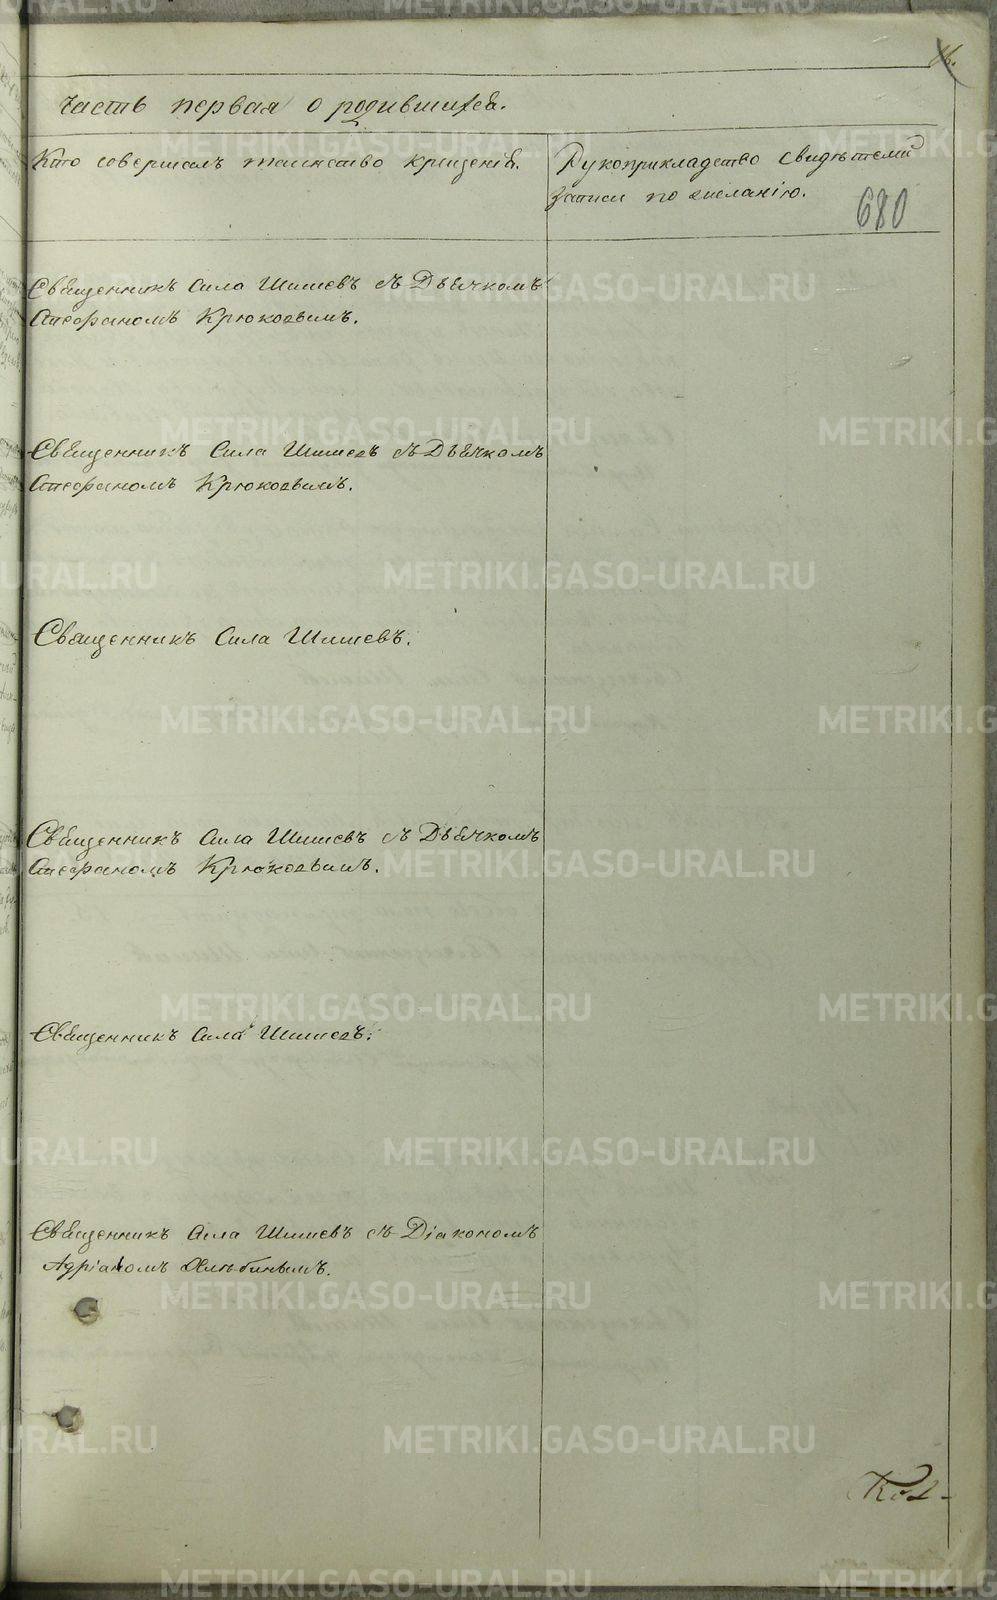 часть первая о родившихся.
Кто совершалъ таинство крещенія.
Рукоприкладство свидѣтелей
записи по желанію.
680
Священникъ Сила Шишевъ съ Дьячкомъ
Стефаномъ Крюковымъ.
Священникъ Сила Шишевъ съ Дьячкомъ
Стефаномъ Крюковымъ.
Священникъ Сила Шишевъ.
Священникъ Сила Шишевъ съ Дьячкомъ
Стефаномъ Крюковымъ.
Священникъ Сила Шишевъ.
Священникъ Сила Шишевъ съ Діакономъ
Адріаномъ
METRIKI.GASO-URAL.RU